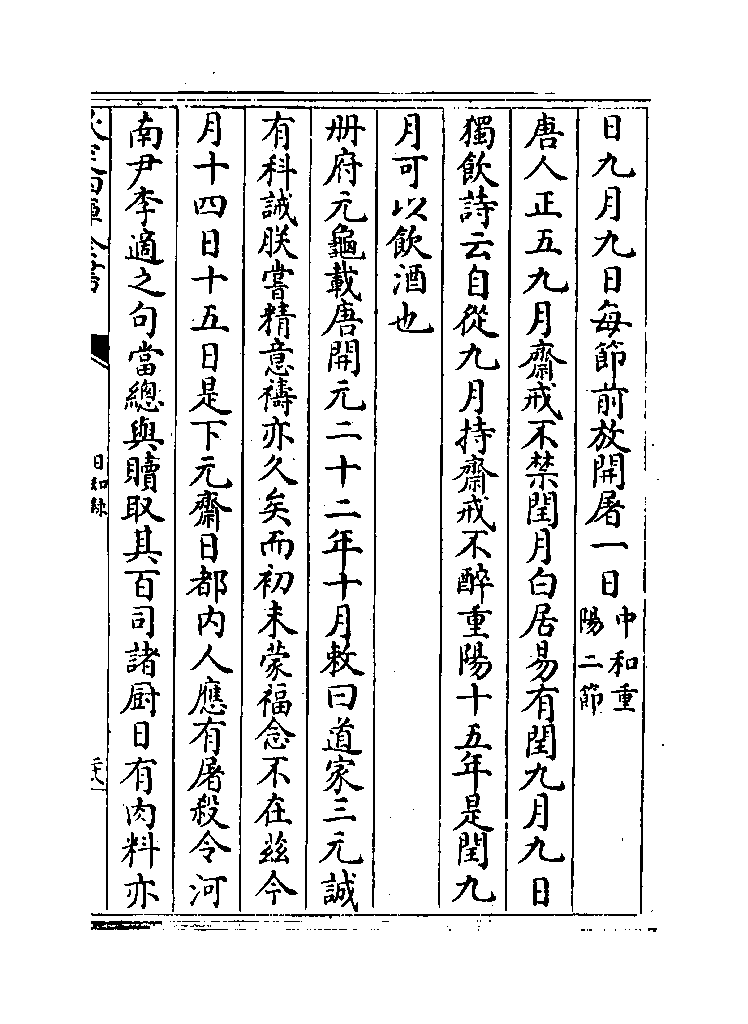 日九月九日每節前放開屠一日中和重陽二節
唐人正五九月齋戒不禁閏月白居易有閏九月九日
獨飲詩云自從九月持齋戒不醉重陽十五年是閏九
月可以飲酒也
冊府元龜載唐開元二十二年十月敕曰道家三元誠
有科誡朕嘗精意禱亦久矣而初未蒙福念不在兹今
月十四日十五日是下元齋日都内人應有屠殺令河
南尹李適之句當總與贖取其百司諸厨日有肉料亦
日知錄